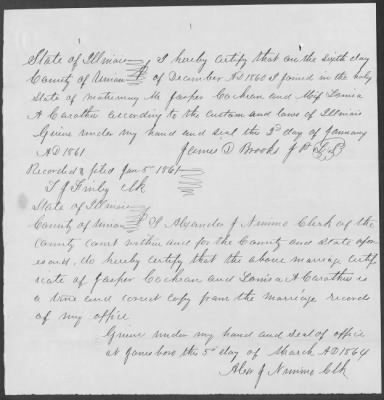 State of Illinois
County of Union I hereby certify that on the sixth day
of December AD 1860 I joined in the holy
State of matrimony Mr Jasper Cochran and Miss Louisa
A Carathers according to the custom and laws of Illinois
Given under my hand and seal this 3d day of January
AD 1861 James D Brooks J P
Recorded & filed Jan 5th 1861
T J Finly Clk
State of Illinois
County of Union I Alexander J Nimmo Clerk of the
County Court within and for the County and State afore
said, do hereby certify that the above marriage certif
icate of Jasper Cochran and Louisa A Carathers is
a true and correct copy from the marriage records
of my office
Given under my hand and seal of office
at Jonesboro this 5th day of March AD 1864
Alex J Nimmo Clk